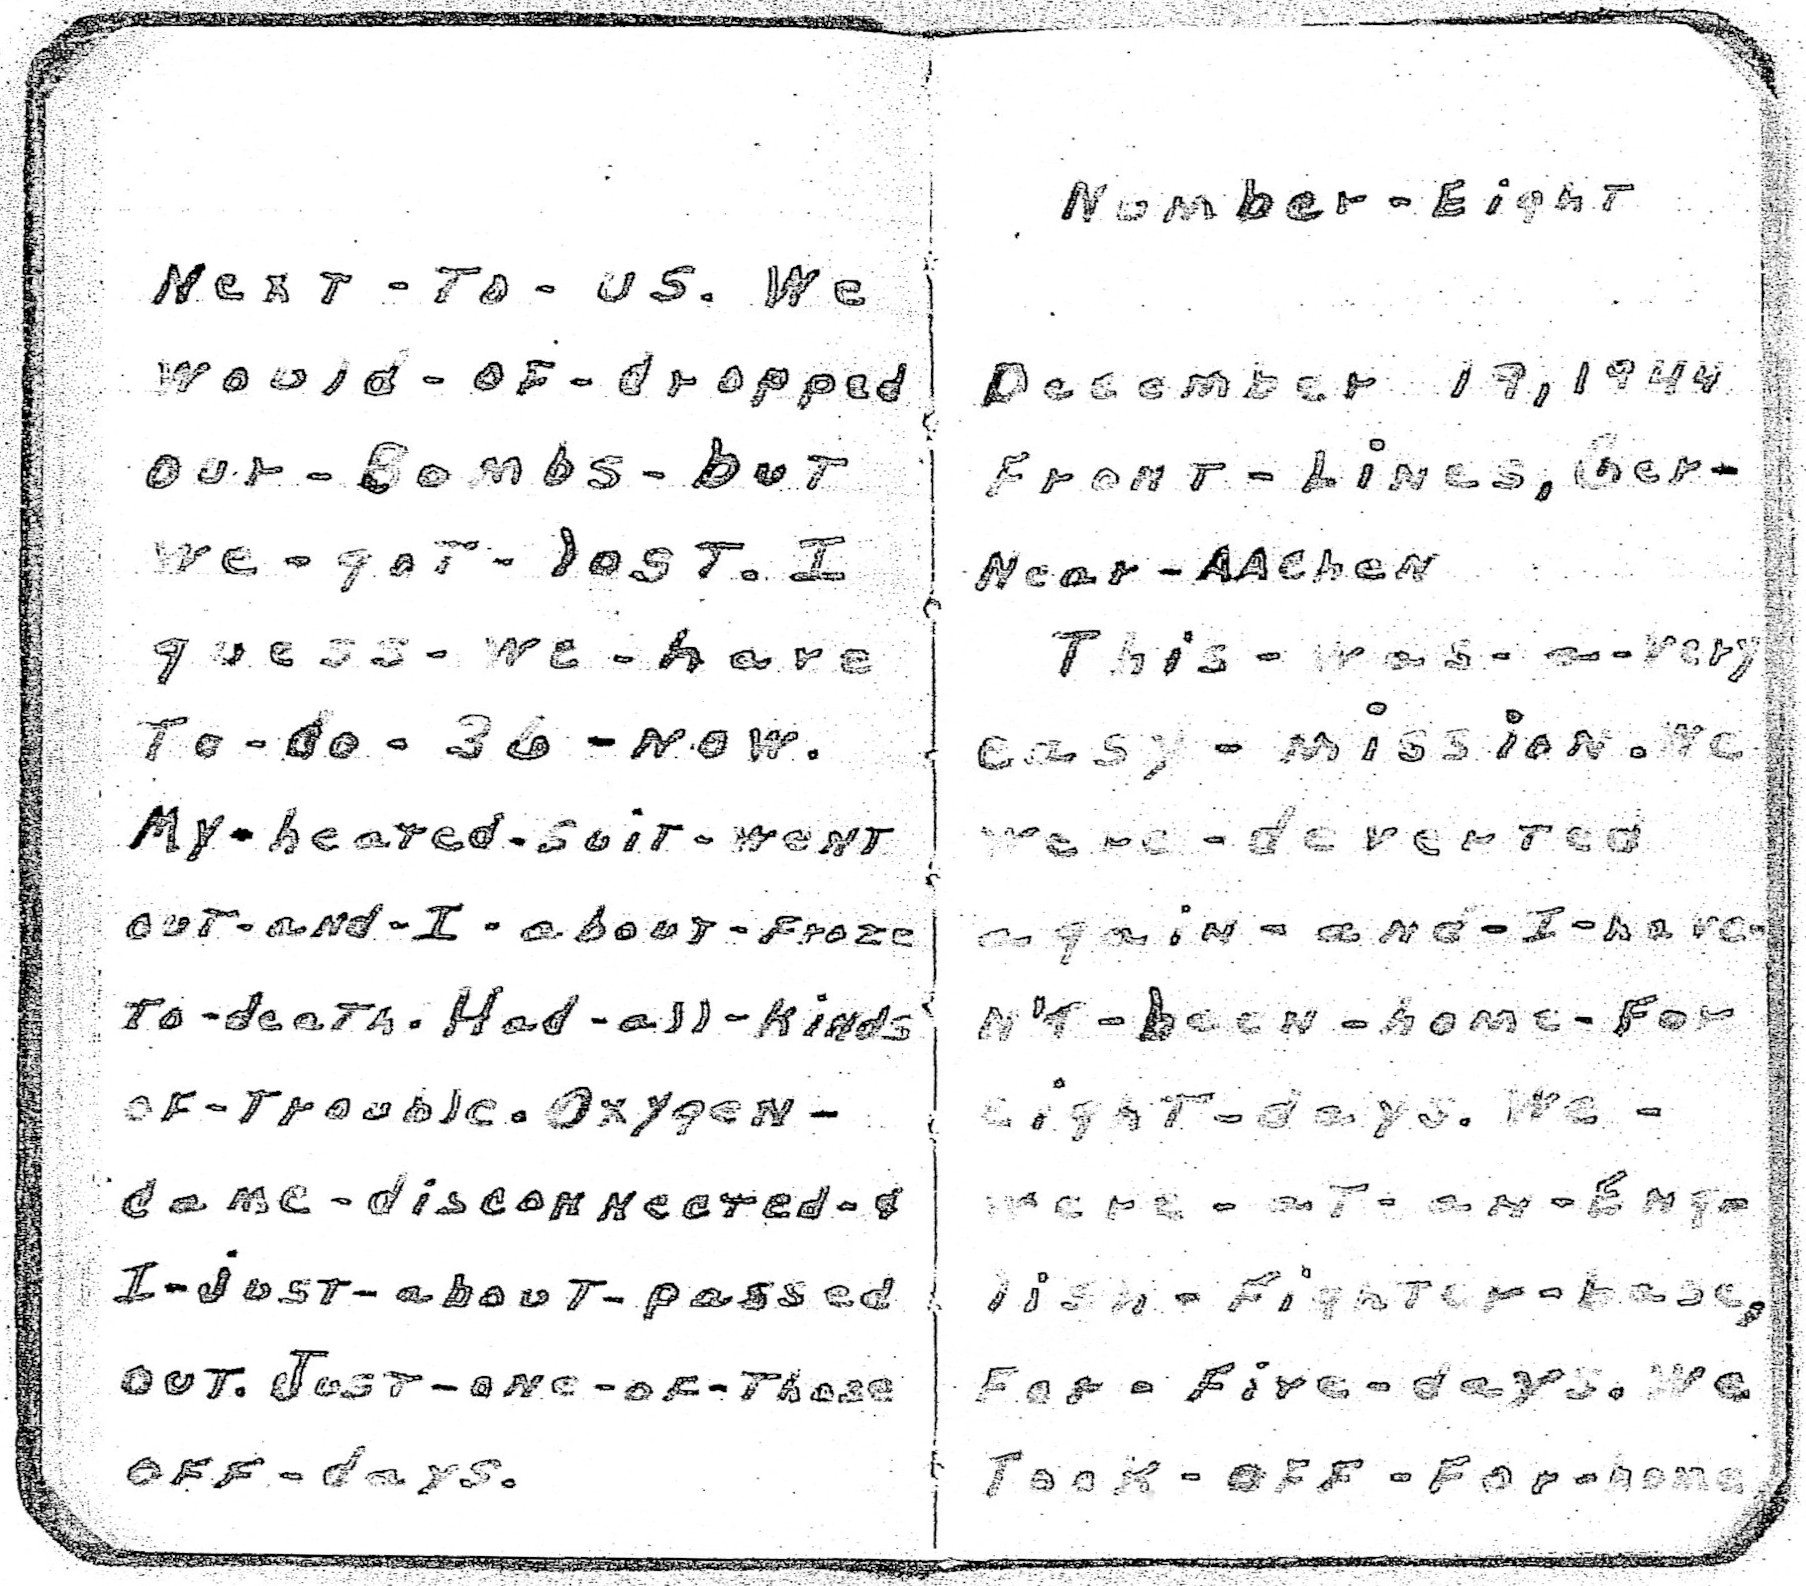 Next-To-US. We
would-of-dropped
our-Bombs-but
we-got-lost. I
guess-we-have
To-do-36-now.
My-heated-suit-went
out-and-I-about-froze
To-death. Had-all-kinds
of-Trouble. Oxygen-
came-disconnected-&
I-just-about-passed
out. Just-one-of-Those
off-days.
Number-Eight
December 19, 1944
Front-Lines, Ger-
Near-AAChen
This-was-a-very
easy-mission. We
were-deverted
again-and-I-have-
n't-been-home-for
eight-days. We-
were-at-an-Eng-
lish-Fighter-base,
For-Five-days. We
Took-off-For-home